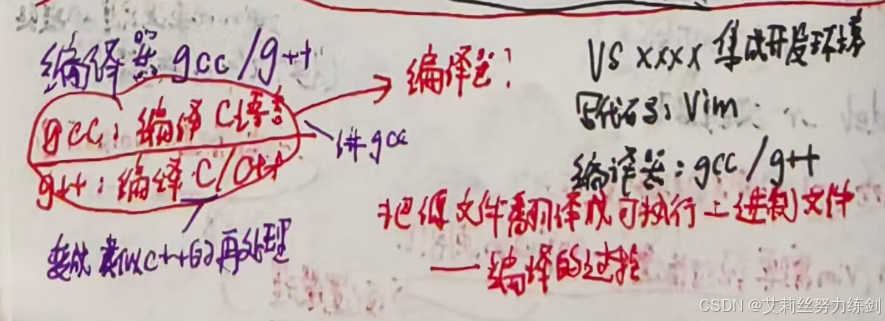 编译器 gcc/g++
gcc:编译C语言
g++:编译C/C++
讲gcc
变成类似C++的再处理
编译器?
VS xxxx 集成开发环境
写代码:Vim
编译器:gcc/g++
把源文件翻译成可执行二进制文件
——编译的过程
CSDN @艾莉丝努力练剑